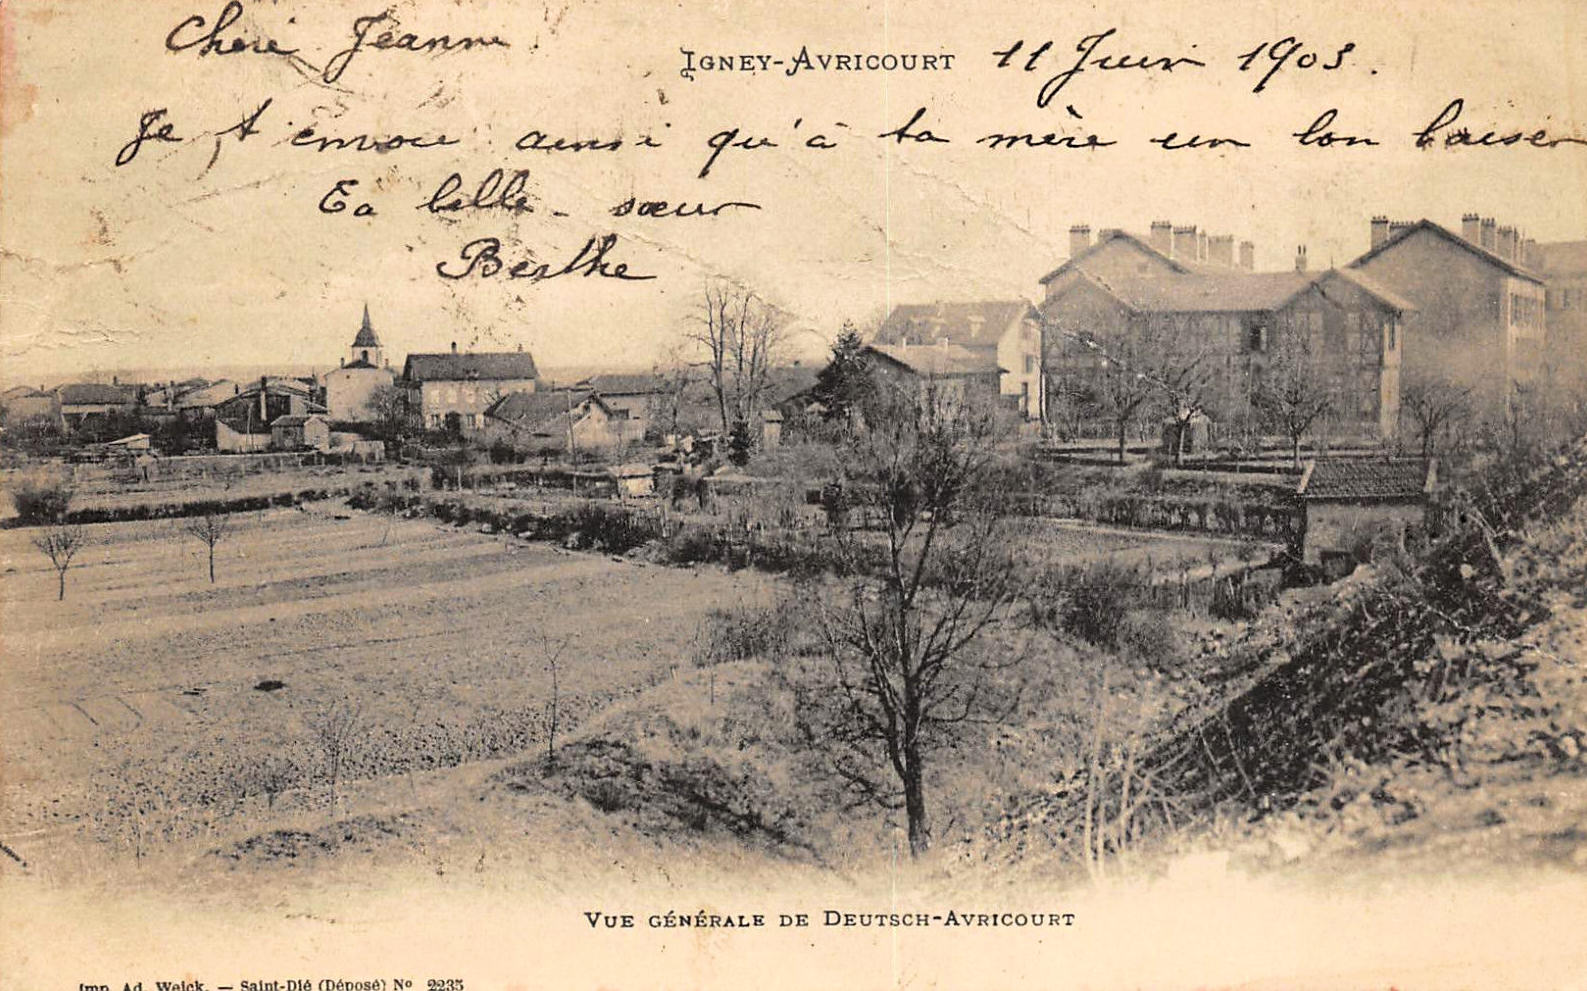 Cheri Jeanne
IGNEY-AVRICOURT 11 Juin 1903.
Je t'envoie ainsi qu'à ta mère un bon baiser
Ta belle-sœur
Berthe
VUE GÉNÉRALE DE DEUTSCH-AVRICOURT
Imp. Ad. Weick. — Saint-Dié (Déposé) Nº 2235